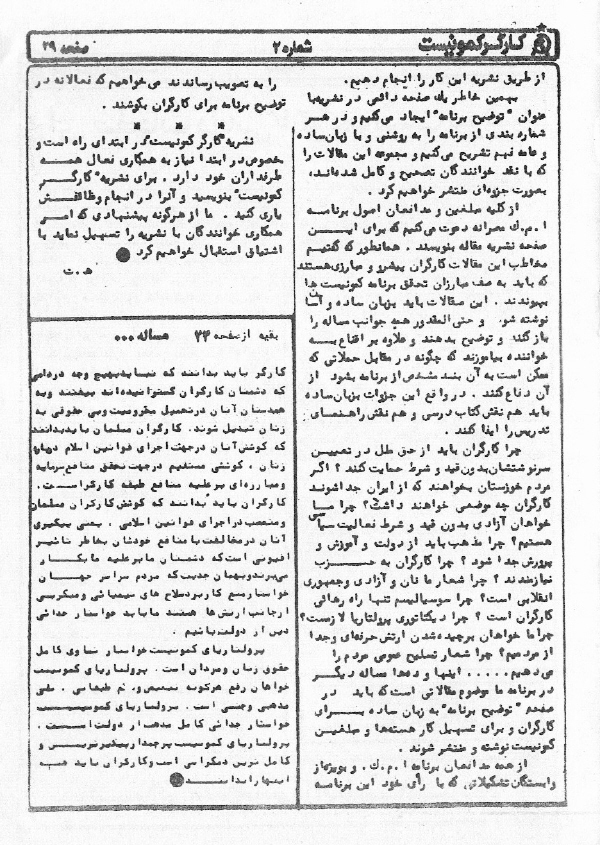 کارگر کمونیست
شماره ۲
صفحه ۲۹
از طریق نشریه این کار را انجام دهیم.
بهمین خاطر یک صفحه دائمی در نشریه با
عنوان "توضیح برنامه" ایجاد می‌کنیم و در هر
شماره بندی از برنامه را به روشنی و با زبان ساده
و عامه فهم تشریح می‌کنیم و مجموعه این مقالات را
که با نقد خوانندگان تصحیح و کامل شده‌اند،
بصورت جزوه‌ای منتشر خواهیم کرد.
از کلیه مبلغین و مدافعان اصول برنامه
ا.م.ك مصرانه دعوت می‌کنیم که برای ایـن
صفحه نشریه مقاله بنویسند. همانطور که گفتیم
مخاطب این مقالات کارگران پیشرو و مبارزی هستند
که باید به صف مبارزان تحقق برنامه کمونیست ها
بپیوندند. این مقالات باید بزبان ساده و آسان
نوشته شو. و حتی المقدور همه جوانب مساله را
باز کند و توضیح بدهند و علاوه بر اقناع بـه
خواننده بیاموزند که چگونه در مقابل حملاتی که
ممکن است به آن بند مشخص از برنامه بشود از
آن دفاع کنند. در واقع این جزوات بزبان ساده
باید هم نقش کتاب درسی و هم نقش راهنمای
تدریس را ایفا کنند.
چرا کارگران باید از حق ملل در تعیین
سرنوشتشان بدون قید و شرط حمایت کنند؟ اگر
مردم خوزستان بخواهند که از ایران جدا شوند
کارگران چه موضعی خواهند داشت؟ چرا مـا
خواهان آزادی بدون قید و شرط فعالیت سیاسی
هستیم؟ چرا مذهب باید از دولت و آموزش و
پرورش جدا شود؟ چرا کارگران به حــزب
نیازمندند؟ چرا شعار ما نان و آزادی وجمهوری
انقلابی است؟ چرا سوسیالیسم تنها راه رهائی
کارگران است؟ چرا دیکتاتوری پرولتاریا لازست؟
چرا ما خواهان برچیده شدن ارتش حرفه‌ای وجدا
از مردمیم؟ چرا شعار تسلیح عمومی مردم را
می‌دهیم..... اینها و ده‌ها مساله دیـگر
در برنامه ما موضوع مقالاتی است که باید در
صفحه "توضیح برنامه" به زبان ساده بـرای
کارگران و برای تسهیل کار هسته‌ها و مبلغین
کمونیست نوشته و منتشر شوند.
از همه مدافعان برنامه ا.م.ك. و بویژه از
وابستگان تشکیلاتی که با رأی خود این برنامـه
را به تصویب رساندند می‌خواهیم که فعالانه در
توضیح برنامه برای کارگران بکوشند.
* * *
نشریه "کارگر کمونیست" در ابتدای راه است و
بخصوص در ابتدا نیاز به همکاری فعال همـه
طرفداران خود دارد. برای نشریه "کارگـر
کمونیست" بنویسید و آنرا در انجام وظائفـش
یاری کنید. ما از هرگونه پیشنهادی که امـر
همکاری خوانندگان با نشریه را تسهیل نماید با
اشتیاق استقبال خواهیم کرد
ه.ت
بقیه از صفحه ۲۴ مساله...
کارگر باید بدانند که نباید بهیچ وجه در دامی
که دشمنان کارگران گسترانیده‌اند بیفتند وبه
همدستان آنان در تحمیل محرومیت وبی حقوقی به
زنان تبدیل شوند. کارگران مسلمان باید بدانند
که کوشش آنان در جهت اجرای قوانین اسلام درباره
زنان، کوشش مستقیم در جهت تحقق منافع سرمایه
و مبارزه‌ای بر علیه منافع طبقه کارگر است.
کارگران باید بدانند که کوشش کارگران مسلمان
و متعصب در اجرای قوانین اسلامی، یعنی پیگیری
آنان در مخالفت با منافع خودشان بخاطر تاثیر
افیونی است که دشمنان ما بر علیه ما بکـار
می‌برند و بهمان جدیت که مردم سراسر جهـان
خواستار منع کاربرد سلاح های شیمیائی و میکربی
از جانب ارتش‌ها هستند ما باید خواستار جدائی
دین از دولت باشیم.
پرولتاریای کمونیست خواستار تساوی کامل
حقوق زنان و مردان است. پرولتاریای کمونیست
خواهان رفع هرگونه تبعیض و ستم طبقاتی، ملی
مذهبی و جنسی است. پرولتاریای کمونیسـت
خواستار جدائی کامل مذهب از دولت اسـت.
پرولتاریای کمونیست پرچمدار پیگیرترین و
کامل ترین دمکراسی است و کارگران باید همه
اینها را بدانند